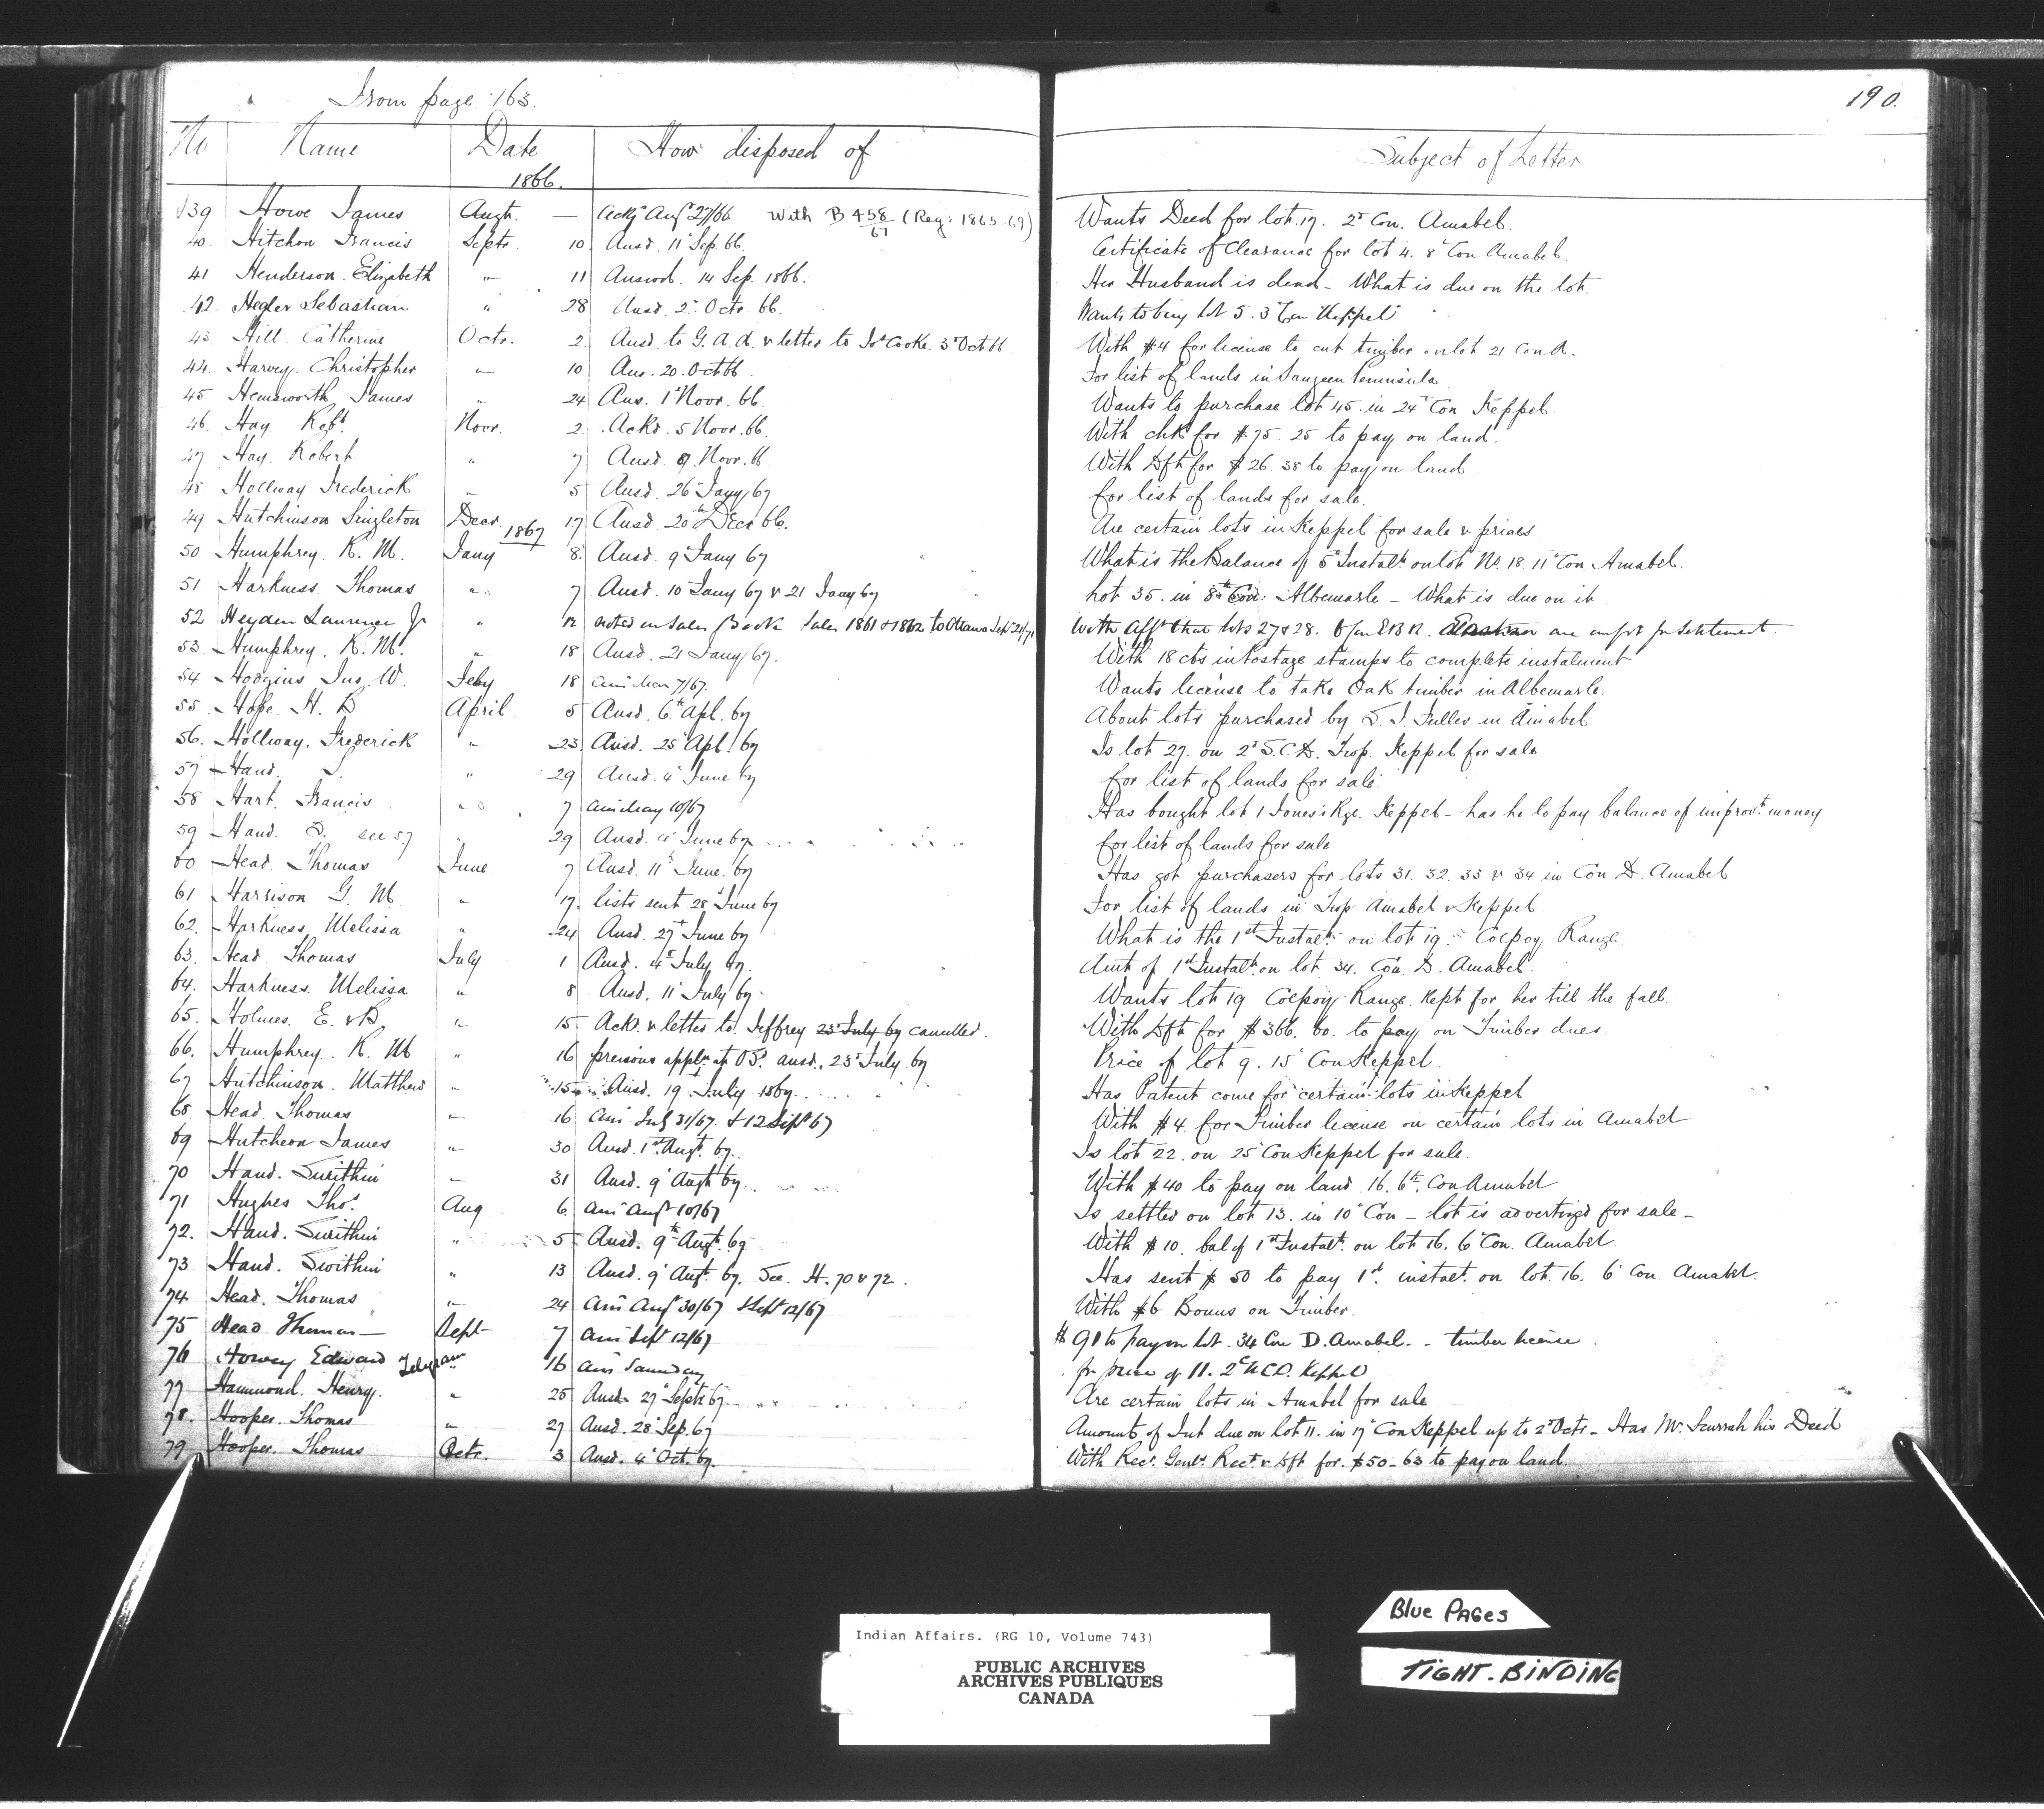 From page 163.
190.
No Name Date How disposed of Subject of Letter
1866.
139 Howe James Augt. — Ackd Augt 27/66 With B 458/67 (Reg: 1865-69) Wants Deed for lot 17. 2d Con. Amabel.
40. Hitchon Francis Septr. 10 Ansd. 11 Sep. 66. Certificate of Clearance for lot 4. 8 Con Amabel.
41 Henderson. Elizabeth " 11 Answd. 14 Sep. 1866. Her Husband is dead - What is due on the lot.
42 Hegler Sebastian " 28 Ansd. 2d Octr. 66. Wants to buy lot 5. 3 Con Keppel
43. Hill. Catherine Octr. 2 Ansd. to G. A. A. & letter to Jos Cooke. 3d Oct 66 With $4 for license to cut timber on lot 21 Con A.
44. Harvey. Christopher " 10 Ans. 20. Oct 66. For list of lands in Saugeen Peninsula
45 Hemsworth James " 24 Ans. 1 Novr. 66. Wants to purchase lot 45. in 24 Con Keppel.
46. Hay Robt. Novr. 2 Ackd. 5 Novr. 66. With chk for $75.25 to pay on land.
47 Hay. Robert " 7 Ansd. 9 Novr. 66 With Dft for $26.38 to pay on land
48 Hollway Frederick " 5 Ansd. 26 Jany/67 for list of lands for sale.
49 Hutchinson Singleton Decr. 17 Ansd 20th Decr 66. Are certain lots in Keppel for sale & prices
1867
50 Humphrey. R. M. Jany 8. Ansd. 9 Jany 67 What is the Balance of 5 Instalt on lot No. 18. 11 Con Amabel.
51 Harkness. Thomas " 7 Ansd. 10 Jany 67 & 21 Jany 67 Lot 35. in 8th Con: Albemarle - What is due on it
52 Heyden Laurence Jr " 12 noted in Sales Book Sales 1861 & 1862 to Ottawa Sept 21/71 With afft that lots 27 & 28. EBR. are unfit for settlement
53. Humphrey. R. M. " 18 Ansd. 21 Jany/67. With 18 cts in Postage stamps to complete instalment
54 Hodgins Jno. W. Feby 18 ansd Mar 7/67. Wants license to take Oak timber in Albemarle.
55. Hope H. B April. 5 Ansd. 6th Apl. 67 About lots purchased by S. J. Fuller in Amabel
56. Hollway. Frederick " 23 Ansd. 25 Apl. 67 Is lot 27. on 2d S.C.D. Twp. Keppel for sale
57 Hand. S. " 29 Ansd. 4 June 67 for list of lands for sale.
58 Hart. Francis " 7 ansd May 10/67 Has bought lot 1 Jones' Rge. Keppel - has he to pay balance of improvt. money
59 Hand. S. see 57 " 29 Ansd. 4 June 67 for list of lands for sale
60 Head Thomas June 7 Ansd. 11th June. 67 Has got purchasers for lots 31. 32. 33 & 34 in Con D. Amabel
61 Harrison G. M. " 17. lists sent 28 June 67 For list of lands in Twp Amabel & Keppel.
62. Harkness Melissa " 24 Ansd. 27th June 67 What is the 1st Instalt. on lot 19. Colpoy Range.
63. Head. Thomas July 1 Ansd. 4th July 67. Amt of 1st Instalt. on lot 34. Con. D. Amabel.
64. Harkness. Melissa " 8 Ansd. 11 July 67. Wants lot 19 Colpoy Range. Kept for her till the fall.
65. Holmes. E. & B " 15 Ackd. & letter to Jeffrey 23 July 67 cancelled. With Dft for $366.60. to pay on Timber dues.
66. Humphrey. R. M " 16 previous appln. at OSd. ansd. 23d July 67 Price of lot 9. 15 Con Keppel.
67 Hutchinson. Matthew " 15 Ansd. 19 July 1867. Has Patent come for certain lots in Keppel
68 Head. Thomas " 16 ansd July 31/67. & 12 Sept 67 With $4 for Timber license on certain lots in Amabel
69 Hutcheon James " 30 Ansd. 1st Augt. 67. Is lot 22. on 25 Con Keppel for sale.
70 Hand. Swithin " 31 Ansd. 9 Augt 67. With $40 to pay on land. 16. 6th. Con Amabel
71 Hughes Thos. Aug 6 ansd Augt 10/67 Is settled on lot 13. in 10 Con - lot is advertized for sale -
72. Hand. Swithin " 5 Ansd. 9th Augt. 67 With $10. bal of 1st Instalt. on lot 16. 6 Con. Amabel.
73 Hand. Swithin " 13 Ansd. 9 Augt. 67. See. H. 70 & 72. Has sent $50 to pay 1st. instalt. on lot. 16. 6 Con. Amabel.
74 Head. Thomas " 24 ansd Augt 30/67 & Sept 12/67 With $6 Bonus on Timber.
75 Head Thomas — Sept 7 ansd Sept 12/67 $91 to pay on lot. 34 Con D. Amabel. - timber license.
76 Howey Edward Telegram " 16 ansd Same day for price of 11. 2d NCD. Keppel
77 Hammond. Henry. " 25 Ansd. 27 Septr 67 Are certain lots in Amabel for sale
78. Hooper. Thomas " 27 Ansd. 28 Sep. 67 Amount of Int due on lot 11. in 17 Con Keppel up to 2d Octr - Has Mr. Scurrah his Deed
79 Hooper. Thomas Octr. 3 Ansd. 4 Oct. 67. With Recr. Genl's Rect. & Dft for $50-63 to pay on land.
Blue PAGes
TIGHT. BINDING
Indian Affairs. (RG 10, Volume 743)
PUBLIC ARCHIVES
ARCHIVES PUBLIQUES
CANADA